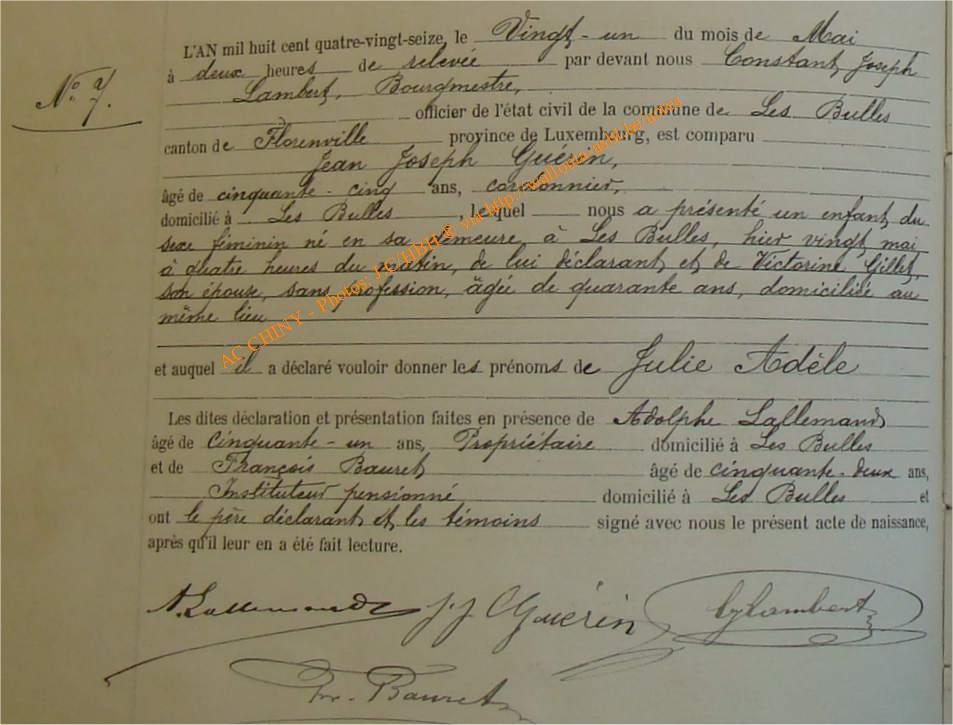 L'AN mil huit cent quatre-vingt-seize, le Vingt-un du mois de Mai
à deux heures de relevée par devant nous Constant Joseph
Lambert, Bourgmestre,
officier de l'état civil de la commune de Les Bulles
No. 7.
canton de Florenville province de Luxembourg, est comparu
Jean Joseph Guérin,
âgé de cinquante-cinq ans, cordonnier,
domicilié à Les Bulles, lequel nous a présenté un enfant du
sexe féminin né en sa demeure à Les Bulles, hier vingt mai
à quatre heures du matin, de lui déclarant et de Victorine Gillet,
son épouse, sans profession, âgée de quarante ans, domiciliée au
même lieu
AC CHINY - Photos J-C HBH © via http://wallonia.asbl.be/actes
et auquel il a déclaré vouloir donner les prénoms de Julie Adèle
Les dites déclaration et présentation faites en présence de Adolphe Lallemand
âgé de Cinquante-un ans, Propriétaire domicilié à Les Bulles
et de François Bauret âgé de cinquante-deux ans,
Instituteur pensionné, domicilié à Les Bulles et
ont le père déclarant et les témoins signé avec nous le présent acte de naissance,
après qu'il leur en a été fait lecture.
A. Lallemand J. J. Guérin CjLambert
Fr. Bauret